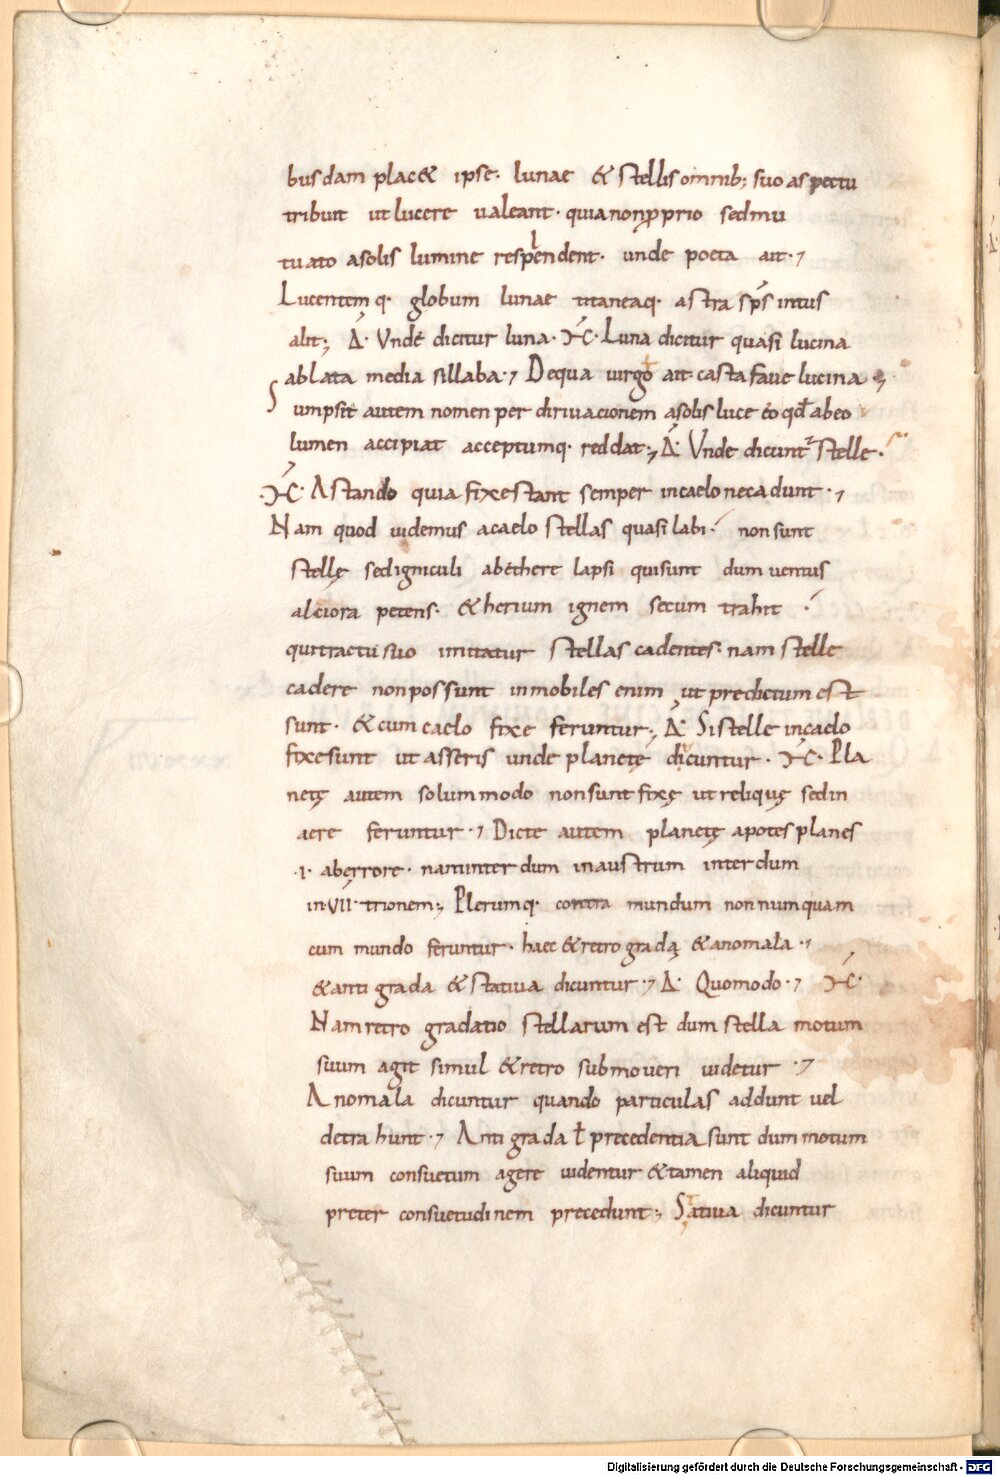 busdam plac& ipse· lunae & stellis omnib; suo aspectu
tribuit ut lucere ualeant· quia non ꝓprio sed mu
tuato a solis lumine resplendent· unde poeta ait·,
Lucentemq· globum lunae titaneaq· astra sp̄s intus
alit; Δ· Vnde dicitur luna· M· Luna dicitur quasi lucina
ablata media sillaba·, De qua uirgo ait casta faue lucina
Sumpsit autem nomen per diriuacionem a solis luce eo qd̄ ab eo
lumen accipiat acceptumq· reddat; Δ· Vnde dicunt᷑ stelle·
M· A stando quia fixe stant semper in caelo nec adunt·,
Nam quod uidemus a caelo stellas quasi labi· non sunt
stellę sed igniculi ab ethere lapsi qui sunt dum uentus
alciora petens· & herium ignem secum trahit·
qui tractu suo imitatur stellas cadentes· nam stelle
cadere non possunt inmobiles enim ut predictum est
sunt· & cum caelo fixe feruntur; Δ· Si stelle in caelo
fixe sunt ut asseris unde planetę dicuntur· M· Pla
netę autem solum modo non sunt fixę ut reliquę sed in
aere feruntur·, Dicte autem planetę apo tes planes
·i· ab errore· nam interdum in austrum interdum
in·VII·trionem; Plerumq· contra mundum non numquam
cum mundo feruntur· haec & retrogradą & anomala·,
& anti grada & statiua dicuntur·, Δ· Quomodo·, M·
Nam retro gradatio stellarum est dum stella motum
suum agit simul & retro submoueri uidetur·,
Anomala dicuntur quando particulas addunt uel
detrahunt·, Anti grada ł precedentia sunt dum motum
suum consuetum agere uidentur & tamen aliquid
preter consuetudinem precedunt; Satiua dicuntur
Digitalisierung gefördert durch die Deutsche Forschungsgemeinschaft - DFG